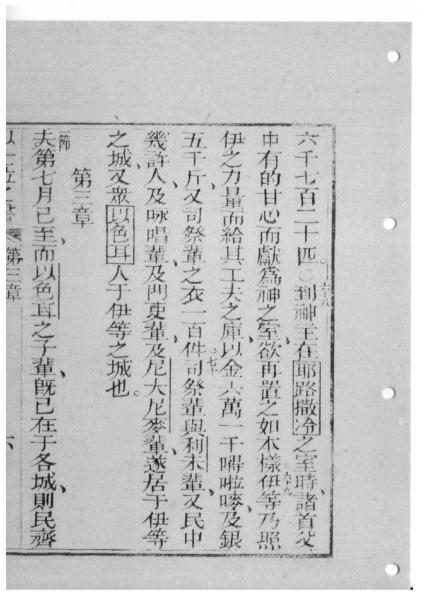 六千七百二十匹。○六八到神主在耶路撒冷之室時、諸首父
中有的甘心而獻爲神之室欲再置之如本樣、六九伊等乃照
伊之力量而給其工夫之庫以金六萬一千嘚啦嘜、及銀
五千斤、又司祭輩之衣一百件。七十司祭輩與利未輩、又民中
幾許人及咏唱輩、及門吏輩、及尼大尼麥輩、遂居于伊等
之城、又眾以色耳人于伊等之城也。
第三章
一節夫第七月已至、而以色耳之子輩、旣已在于各城、則民齊
第三章
六